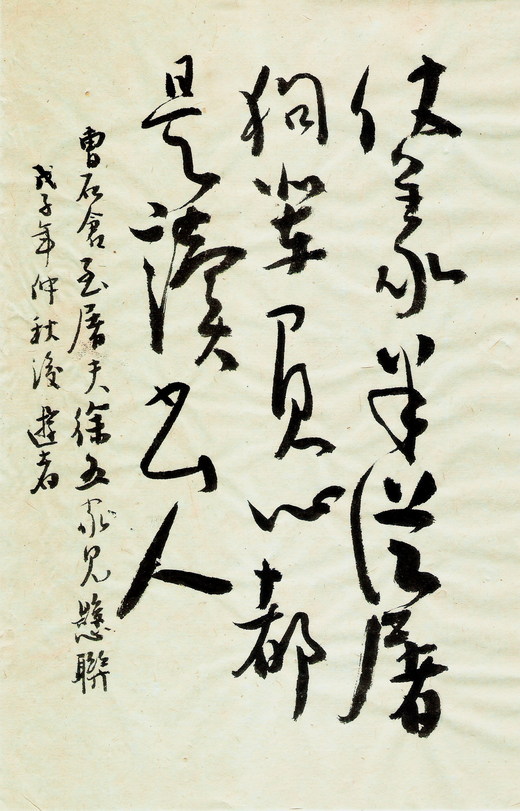 仗義半從屠
狗輩負心都
是讀書人
曹石倉至屠夫徐五家見懸聯
戊子年仲秋後